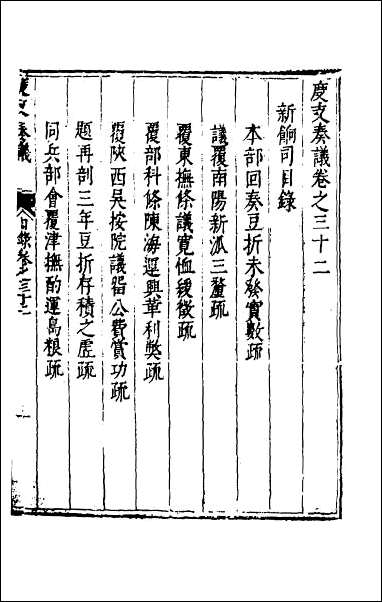 度支奏議卷之三十二
新餉司目錄
本部回奏豆折未發實數疏
議覆南陽新派三釐疏
覆東撫條議寬恤緩徵疏
覆部科條陳海運興革利獘疏
覆陝西吳按院議留公費賞功疏
題再剖三年豆折存積之虛疏
同兵部會覆津撫酌運島糧疏
度支奏議 目錄卷之三十二 一